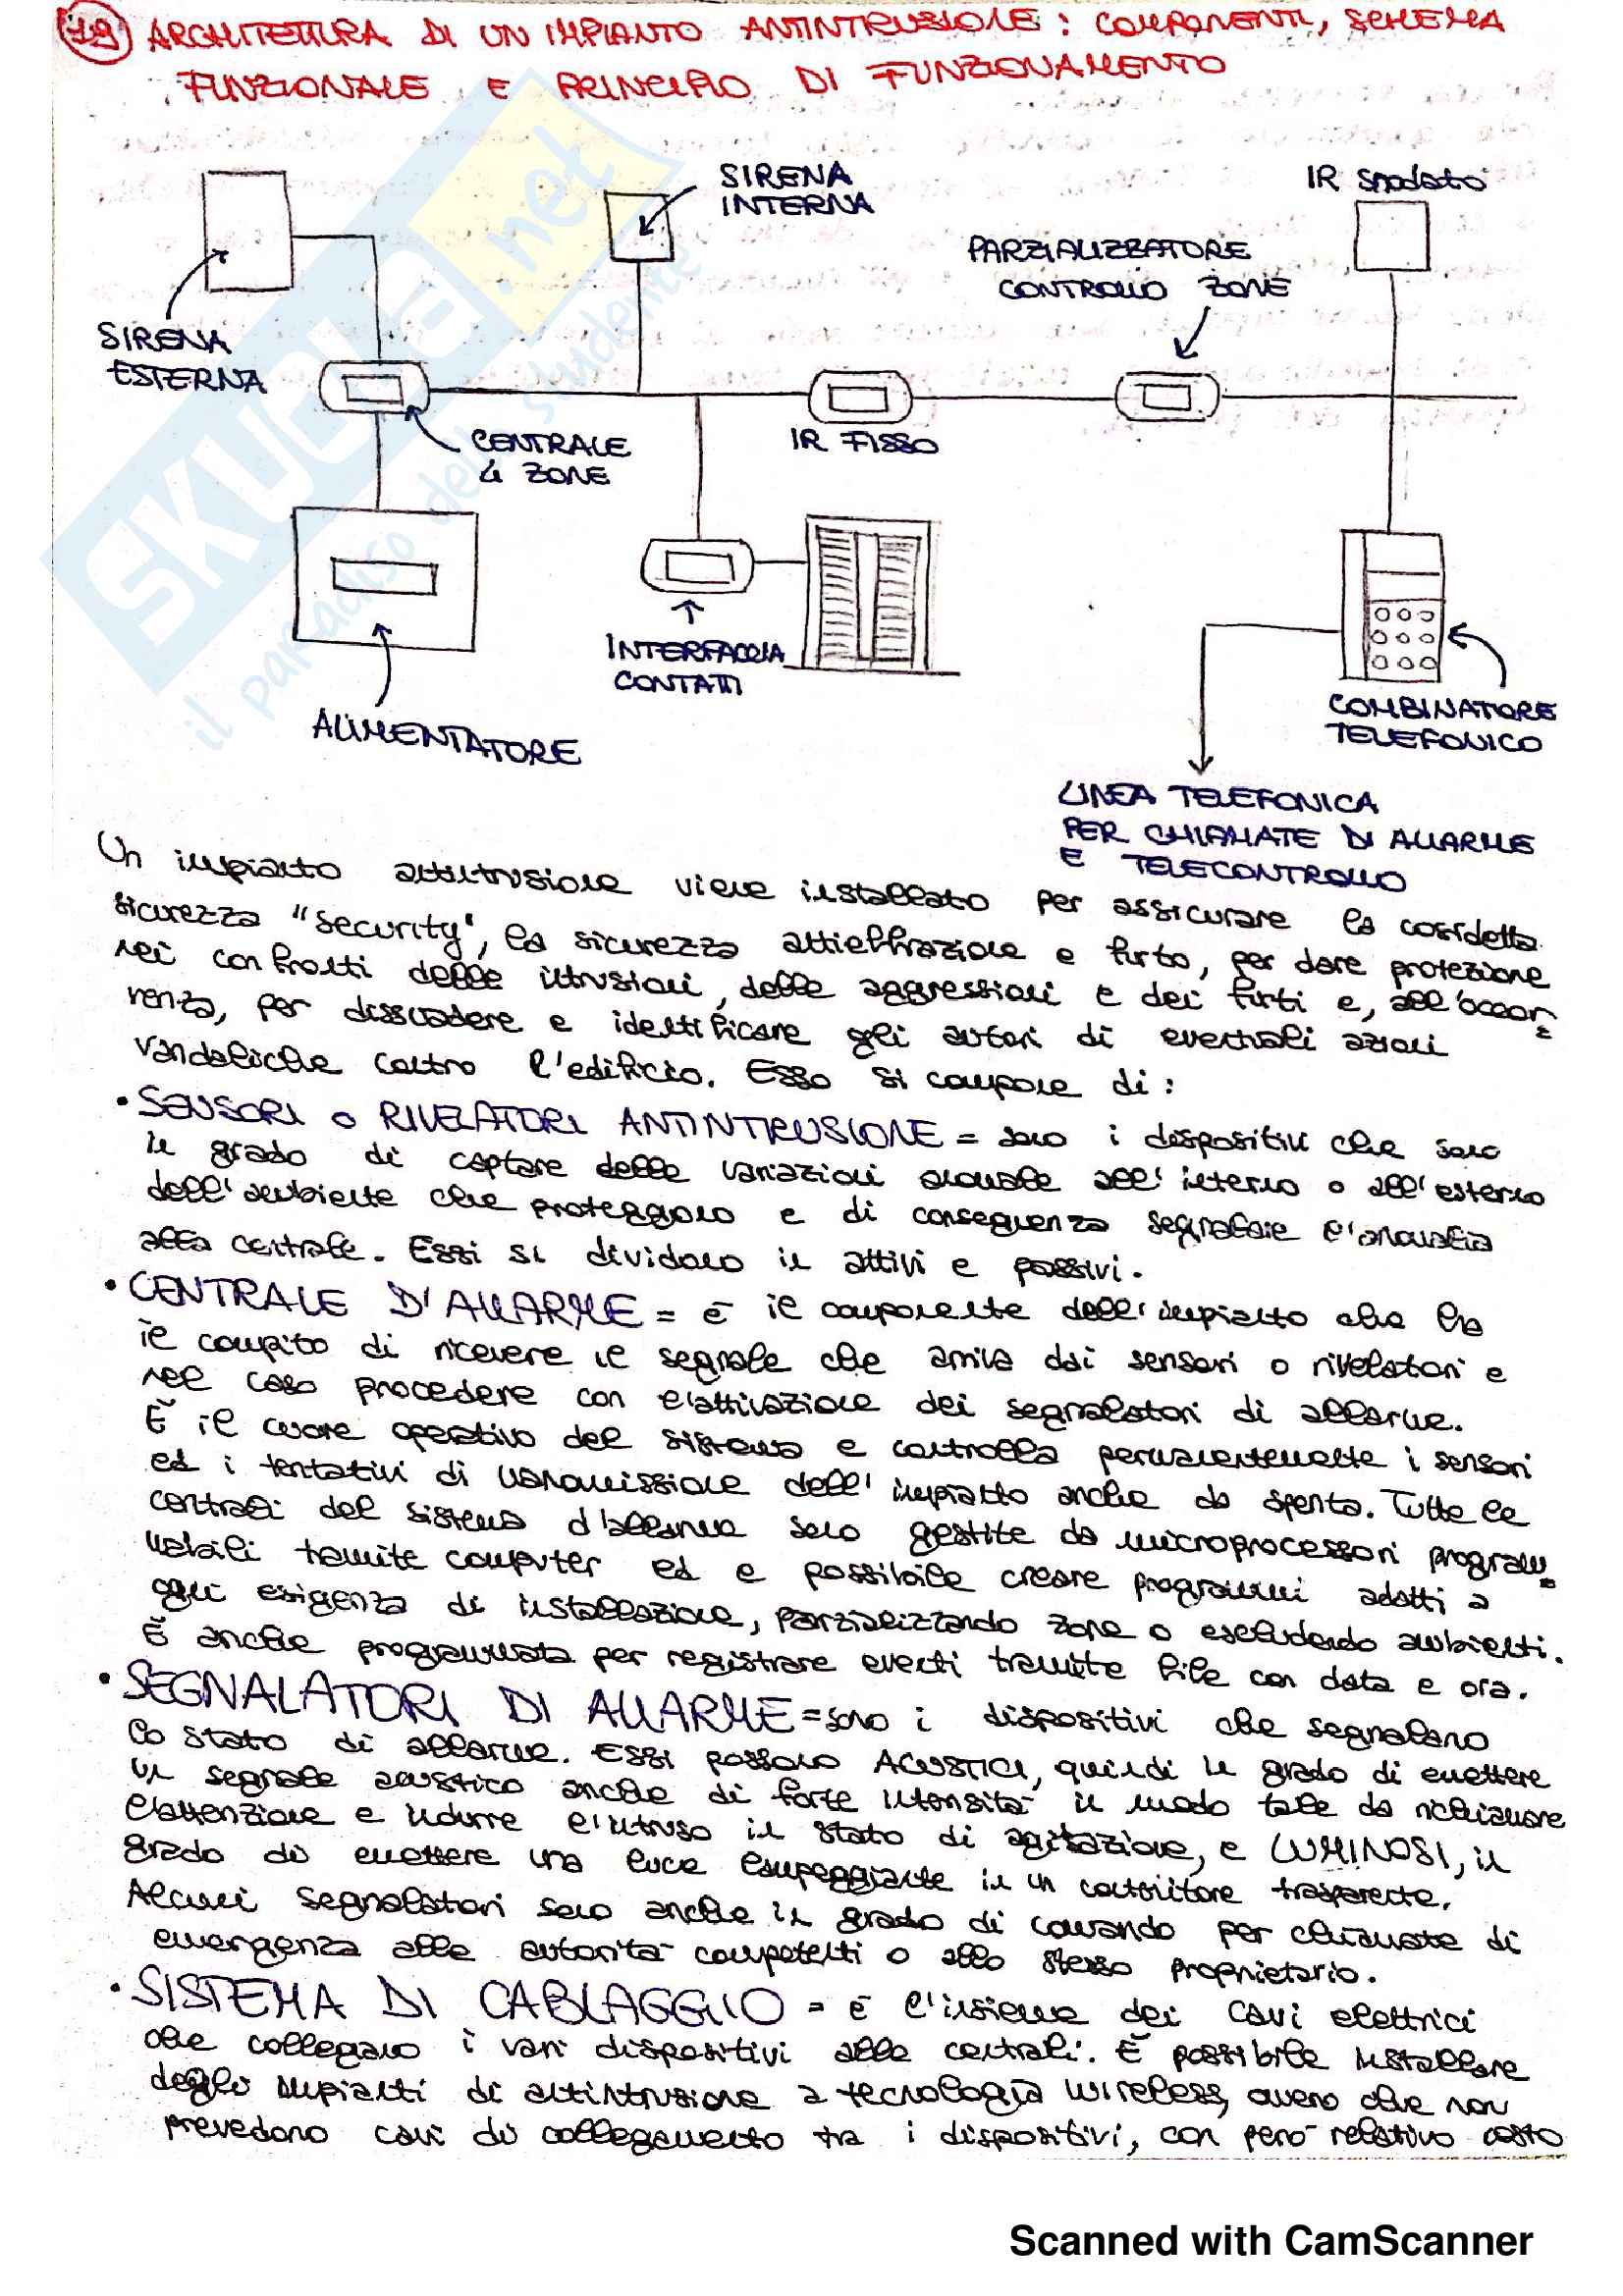 49) ARCHITETTURA DI UN IMPIANTO ANTINTRUSIONE: COMPONENTI, SCHEMA
FUNZIONALE E PRINCIPIO DI FUNZIONAMENTO
SIRENA
INTERNA
IR snodato
PARZIALIZZATORE
CONTROLLO ZONE
SIRENA
ESTERNA
CENTRALE
4 ZONE
IR FISSO
INTERFACCIA
CONTATTI
ALIMENTATORE
COMBINATORE
TELEFONICO
LINEA TELEFONICA
PER CHIAMATE DI ALLARME
E TELECONTROLLO
SKUOLA.net
il paradiso dello studente
Un impianto antintrusione viene installato per assicurare la cosidetta
sicurezza "security", la sicurezza antieffrazione e furto, per dare protezione
nei confronti delle intrusioni, delle aggressioni e dei furti e, all'occor=
renza, per dissuadere e identificare gli autori di eventuali azioni
vandaliche contro l'edificio. Esso si compone di:
• SENSORI o RIVELATORI ANTINTRUSIONE = sono i dispositivi che sono
in grado di captare delle variazioni anomale all'interno o all'esterno
dell'ambiente che proteggono e di conseguenza segnalare l'anomalia
alla centrale. Essi si dividono in attivi e passivi.
• CENTRALE D'ALLARME = è il componente dell'impianto che ha
il compito di ricevere il segnale che arriva dai sensori o rivelatori e
nel caso procedere con l'attivazione dei segnalatori di allarme.
È il cuore operativo del sistema e controlla permanentemente i sensori
ed i tentativi di manomissione dell'impianto anche da spento. Tutte le
centrali del sistema d'allarme sono gestite da microprocessori program=
mabili tramite computer ed e possibile creare programmi adatti a
ogni esigenza di installazione, parzializzando zone o escludendo ambienti.
È anche programmata per registrare eventi tramite file con data e ora.
• SEGNALATORI DI ALLARME = sono i dispositivi che segnalano
lo stato di allarme. Essi possono ACUSTICI, quindi in grado di emettere
un segnale acustico anche di forte intensità in modo tale da richiamare
l'attenzione e indurre l'intruso in stato di agitazione, e LUMINOSI, in
grado di emettere una luce lampeggiante in un contenitore trasparente.
Alcuni segnalatori sono anche in grado di comando per chiamate di
emergenza alle autorità competenti o allo stesso proprietario.
• SISTEMA DI CABLAGGIO = è l'insieme dei cavi elettrici
che collegano i vari dispositivi alle centrali. È possibile installare
degli impianti di antintrusione a tecnologia wireless, ovvero che non
prevedono cavi di collegamento tra i dispositivi, con però relativo costo
Scanned with CamScanner